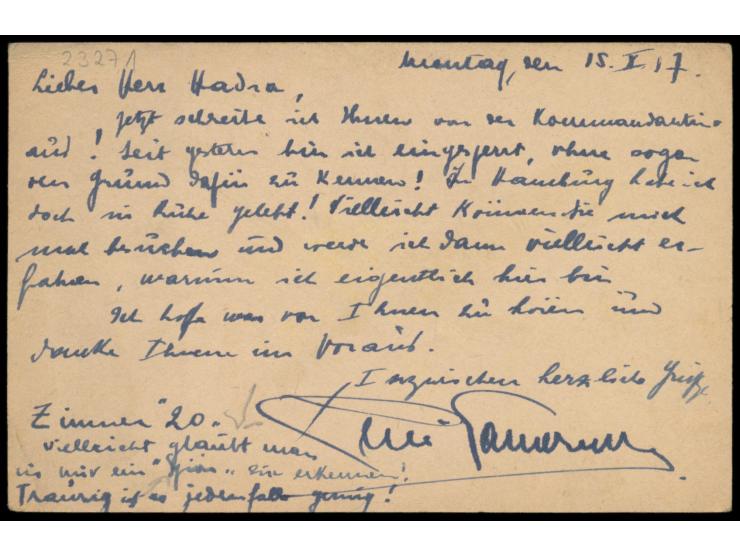 23271
Montag, den 15. X. 17.
Lieber Herr Hadra,
Jetzt schreibe ich Ihnen von der Kommandantur
aus! Seit gestern bin ich eingesperrt, ohne sogar
den Grund dafür zu kennen! In Hamburg habe ich
doch in Ruhe gelebt! Vielleicht können Sie mich
mal besuchen und werde ich dann vielleicht er-
fahren, warum ich eigentlich hier bin
Ich hoffe was von Ihnen zu hören und
danke Ihnen im Voraus.
Inzwischen herzliche Grüße
Zimmer "20"
vielleicht glaubt man
in mir ein "Spion" zu erkennen!
Traurig ist es jedenfalls genug!